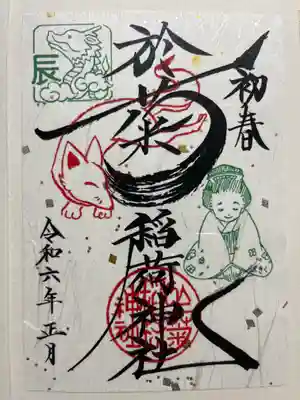 初春
於菊稲荷神社
辰
令和六年正月